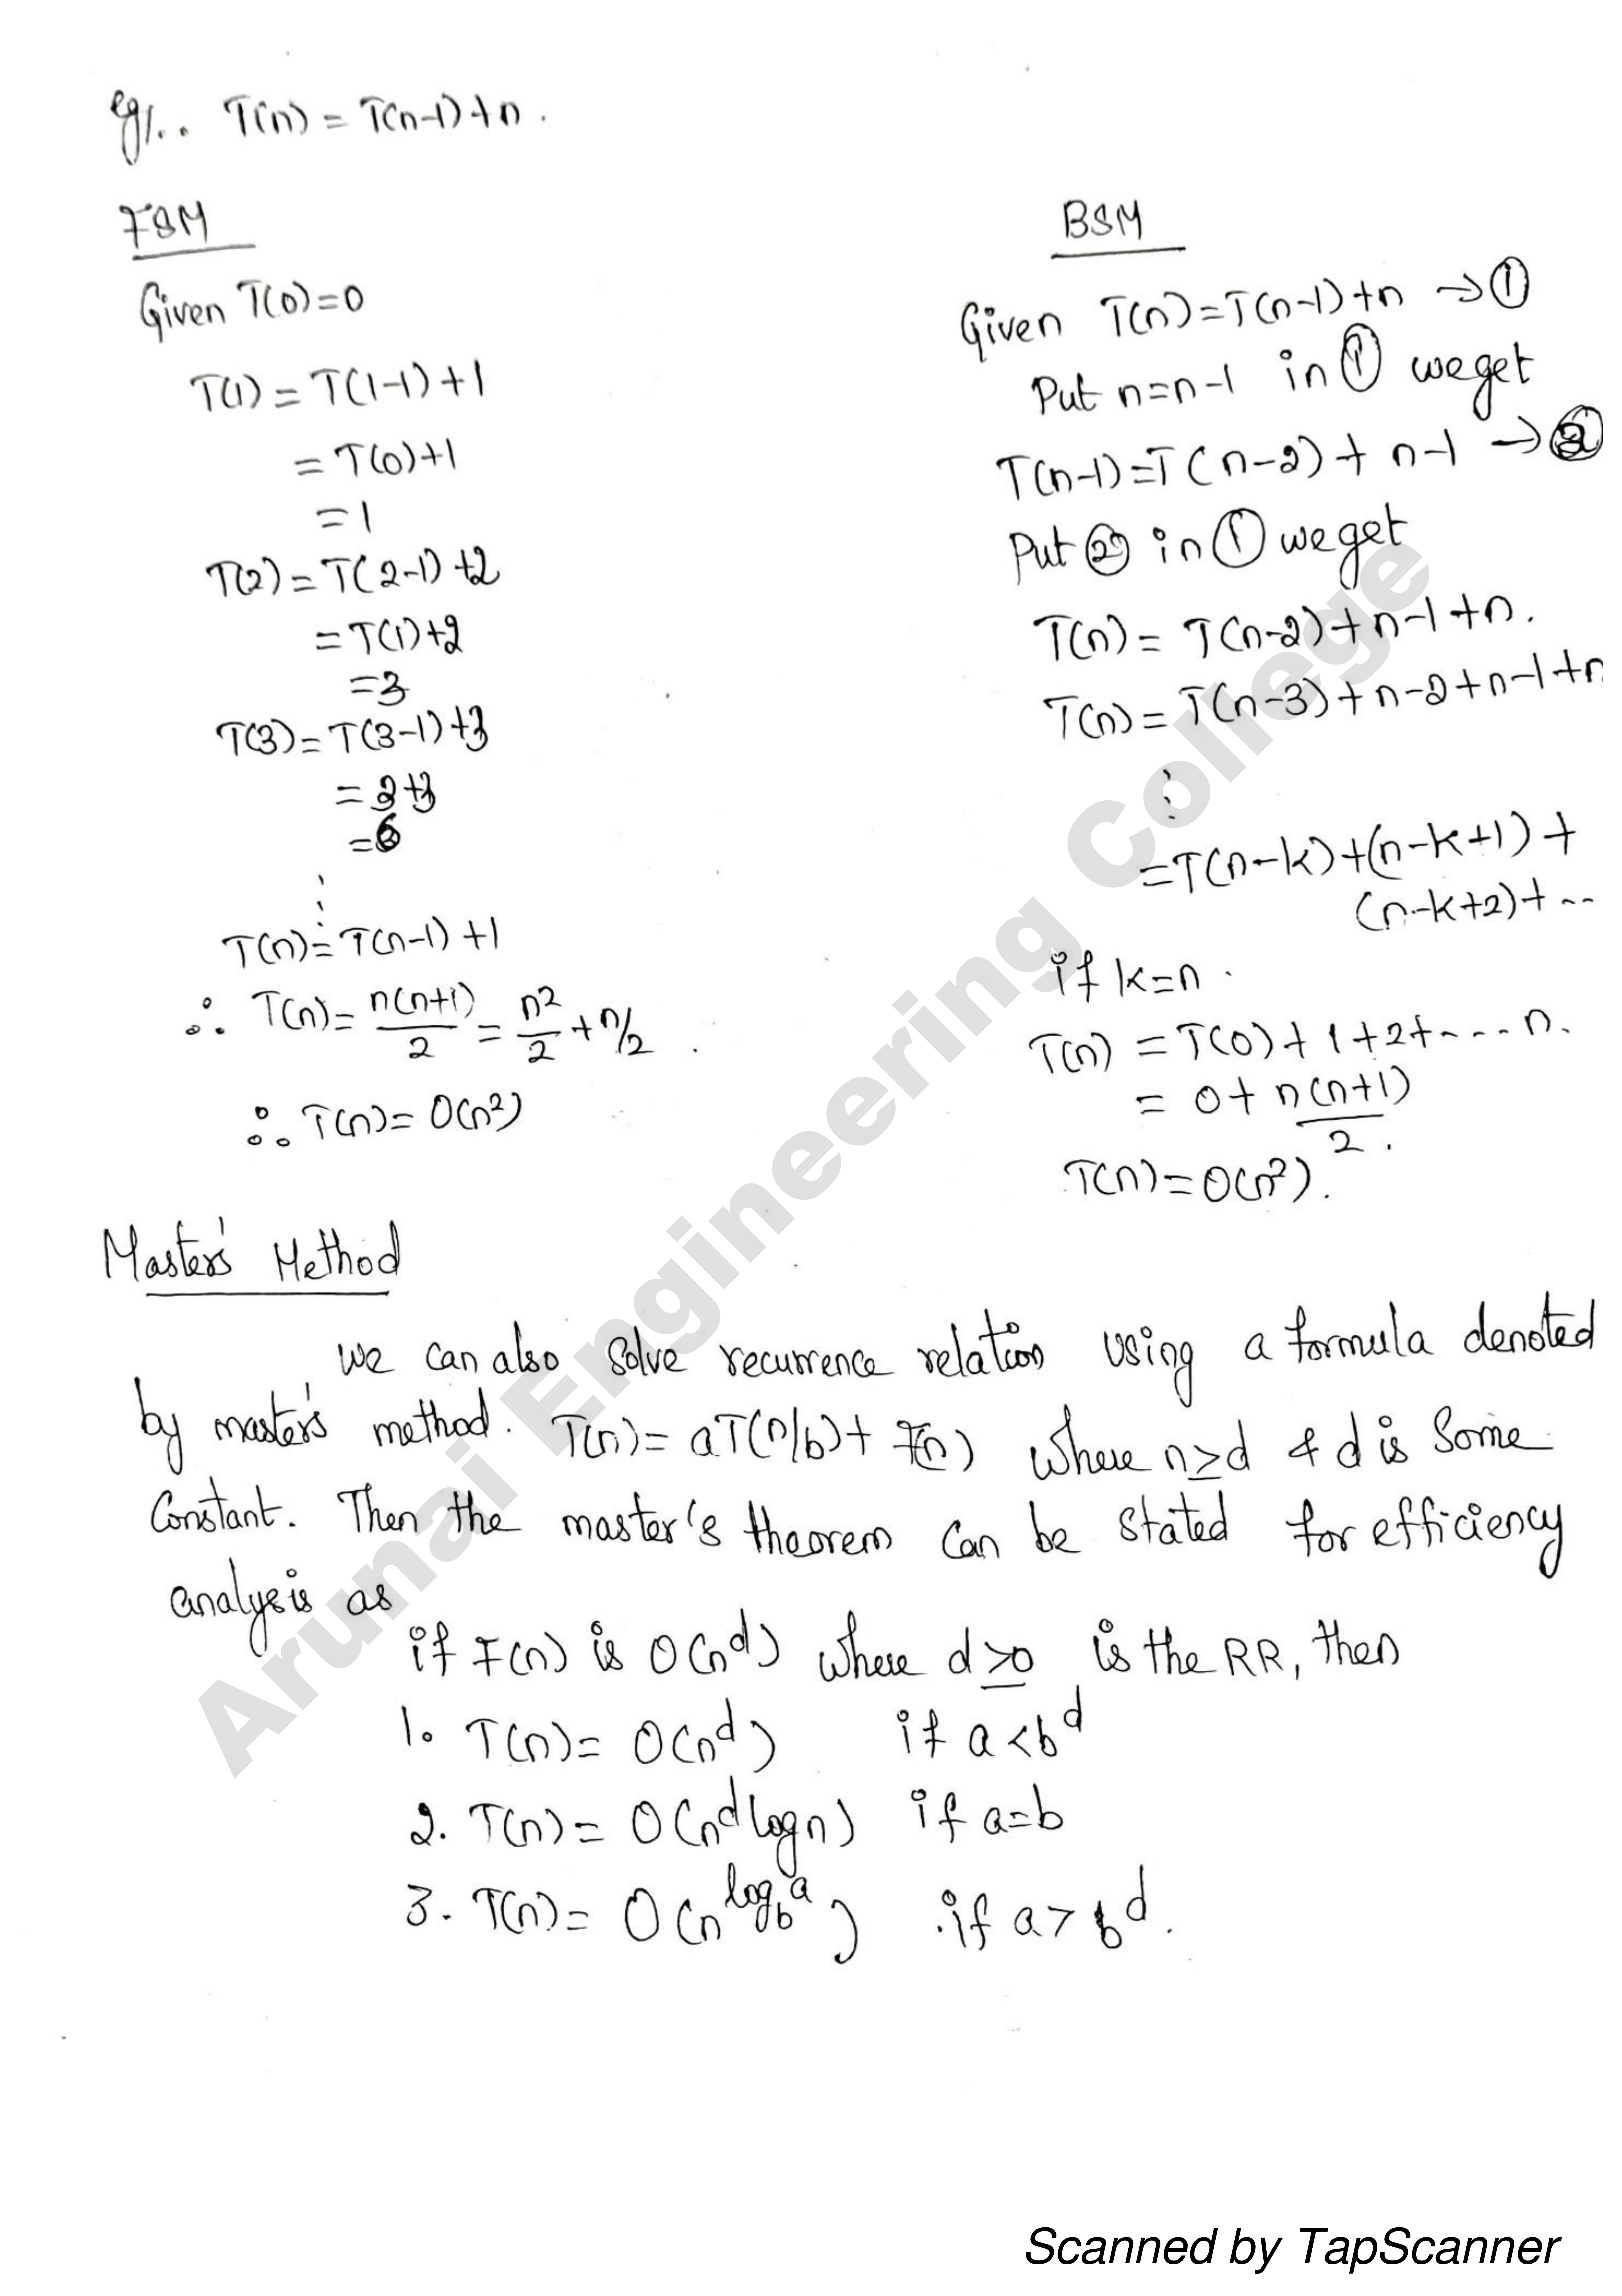 eg/.. T(n) = T(n-1)+n.
FSM
Given T(0)=0
T(1) = T(1-1)+1
= T(0)+1
= 1
T(2) = T(2-1)+2
= T(1)+2
= 3
T(3) = T(3-1)+3
= 3+3
= 6
⋮
T(n) = T(n-1)+1
∴ T(n) = n(n+1)/2 = n²/2 + n/2.
∴ T(n) = O(n²)
BSM
Given T(n)=T(n-1)+n → ①
Put n=n-1 in ① we get
T(n-1)=T(n-2)+ n-1 → ②
Put ② in ① we get
T(n) = T(n-2)+n-1+n.
T(n) = T(n-3)+n-2+n-1+n
⋮
=T(n-k)+(n-k+1)+
(n-k+2)+--
if k=n.
T(n) = T(0)+1+2+---- n.
= 0+ n(n+1)/2.
T(n)=O(n²).
Master's Method
we can also solve recurrence relation using a formula denoted
by master's method. T(n)= aT(n/b)+ F(n) where n≥d & d is Some
Constant. Then the master's theorem can be stated for efficiency
analysis as
if F(n) is O(n^d) where d≥0 is the RR, then
1. T(n)= O(n^d) if a<b^d
2. T(n)= O(n^d log n) if a=b
3. T(n)= O(n^log_b a) if a>b^d.
Arunai Engineering College
Scanned by TapScanner